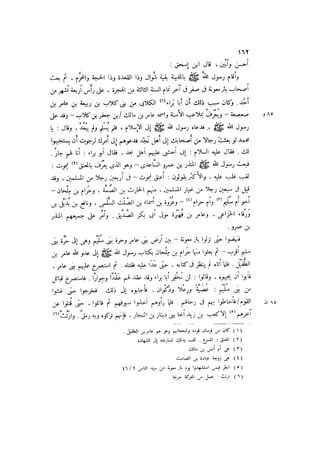 ١٦٢
أحسن وأبين ، قال ابن إسحق :
وأقام رسول الله ﷺ بالمدينة بقية شوال وذا القعدة وذا الحجة والمحرم ، ثم بعث
أصحاب بئر معونة فى صفر فى آخر تمام السنة الثالثة من الهجرة ، على رأس أربعة أشهر من
أحد . وكان سبب ذلك أن أبا براء (١) الكلابى من بنى كلاب بن ربيعة بن عامر بن
صعصعة – ويعرف بملاعب الأسنة واسمه عامر بن مالك بن جعفر بن كلاب – وفد على
رسول الله ﷺ ، فدعاه رسول الله ﷺ إلى الإسلام ، فلم يسلم ولم يبعد ، وقال : يا
محمد لو بعثت رجالا من أصحابك إلى أهل نجد فدعوهم إلى أمرك لرجوت أن يستجيبوا
لك . فقال عليه السلام : إنى أخشى عليهم أهل نجد . فقال أبو براء : أنا لهم جار .
فبعث رسول الله ﷺ المنذر بن عمرو الساعدى – وهو الذى يعرف بالمعنق (٢) ليموت :
لقب غلب عليه ، والأكثر يقولون : أعنق ليموت – فى أربعين رجلا من المسلمين ، وقد
قيل فى سبعين رجلا من خيار المسلمين ، منهم الحارث بن الصمة ، وحرام بن ملحان –
أخو أم سليم (٣) وأم حرام (٤) – وعروة بن أسماء بن الصلت السلمى ، ونافع بن بديل بن
ورقاء الخزاعى ، وعامر بن فهيرة مولى أبى بكر الصديق . وأمر على جميعهم المنذر
بن عمرو .
فنهضوا حتى نزلوا بئر معونة – بين أرض بنى عامر وحرة بنى سليم وهى إلى حرة بنى
سليم أقرب – ثم بعثوا منها حرام بن ملحان بكتاب رسول الله ﷺ إلى عدو الله عامر بن
الطفيل . فلما أتاه لم ينظر فى كتابه ، حتى عدا عليه فقتله . ثم استصرخ عليهم بنى عامر ،
فأبوا أن يجيبوه ، وقالوا : لن نخفر أبا براء وقد عقد لهم عقدا وجوارا . فاستصرخ قبائل
من بنى سليم : عصية ورعلا وذكوان . فأجابوه إلى ذلك . فخرجوا حتى غشوا
القوم فأحاطوا بهم فى رحالهم . فلما رأوهم أخذوا سيوفهم ثم قاتلوا ، حتى قتلوا عن
آخرهم (٥) إلا كعب بن زيد أخا بنى دينار بن النجار . فإنهم تركوه وبه رمق . وارتث (٦)
(١) كان من فرسان قومه وشجعانهم وهو عم عامر بن الطفيل .
(٢) المعنق : المسرع . لقب بذلك لمسارعته إلى الشهادة
(٣) هى أم أنس بن مالك
(٤) هى زوجة عبادة بن الصامت
(٥) انظر فيمن استشهدوا يوم بئر معونة ابن سيد الناس ٤٦/٢
(٦) ارتث : حمل من المعركة جريحا